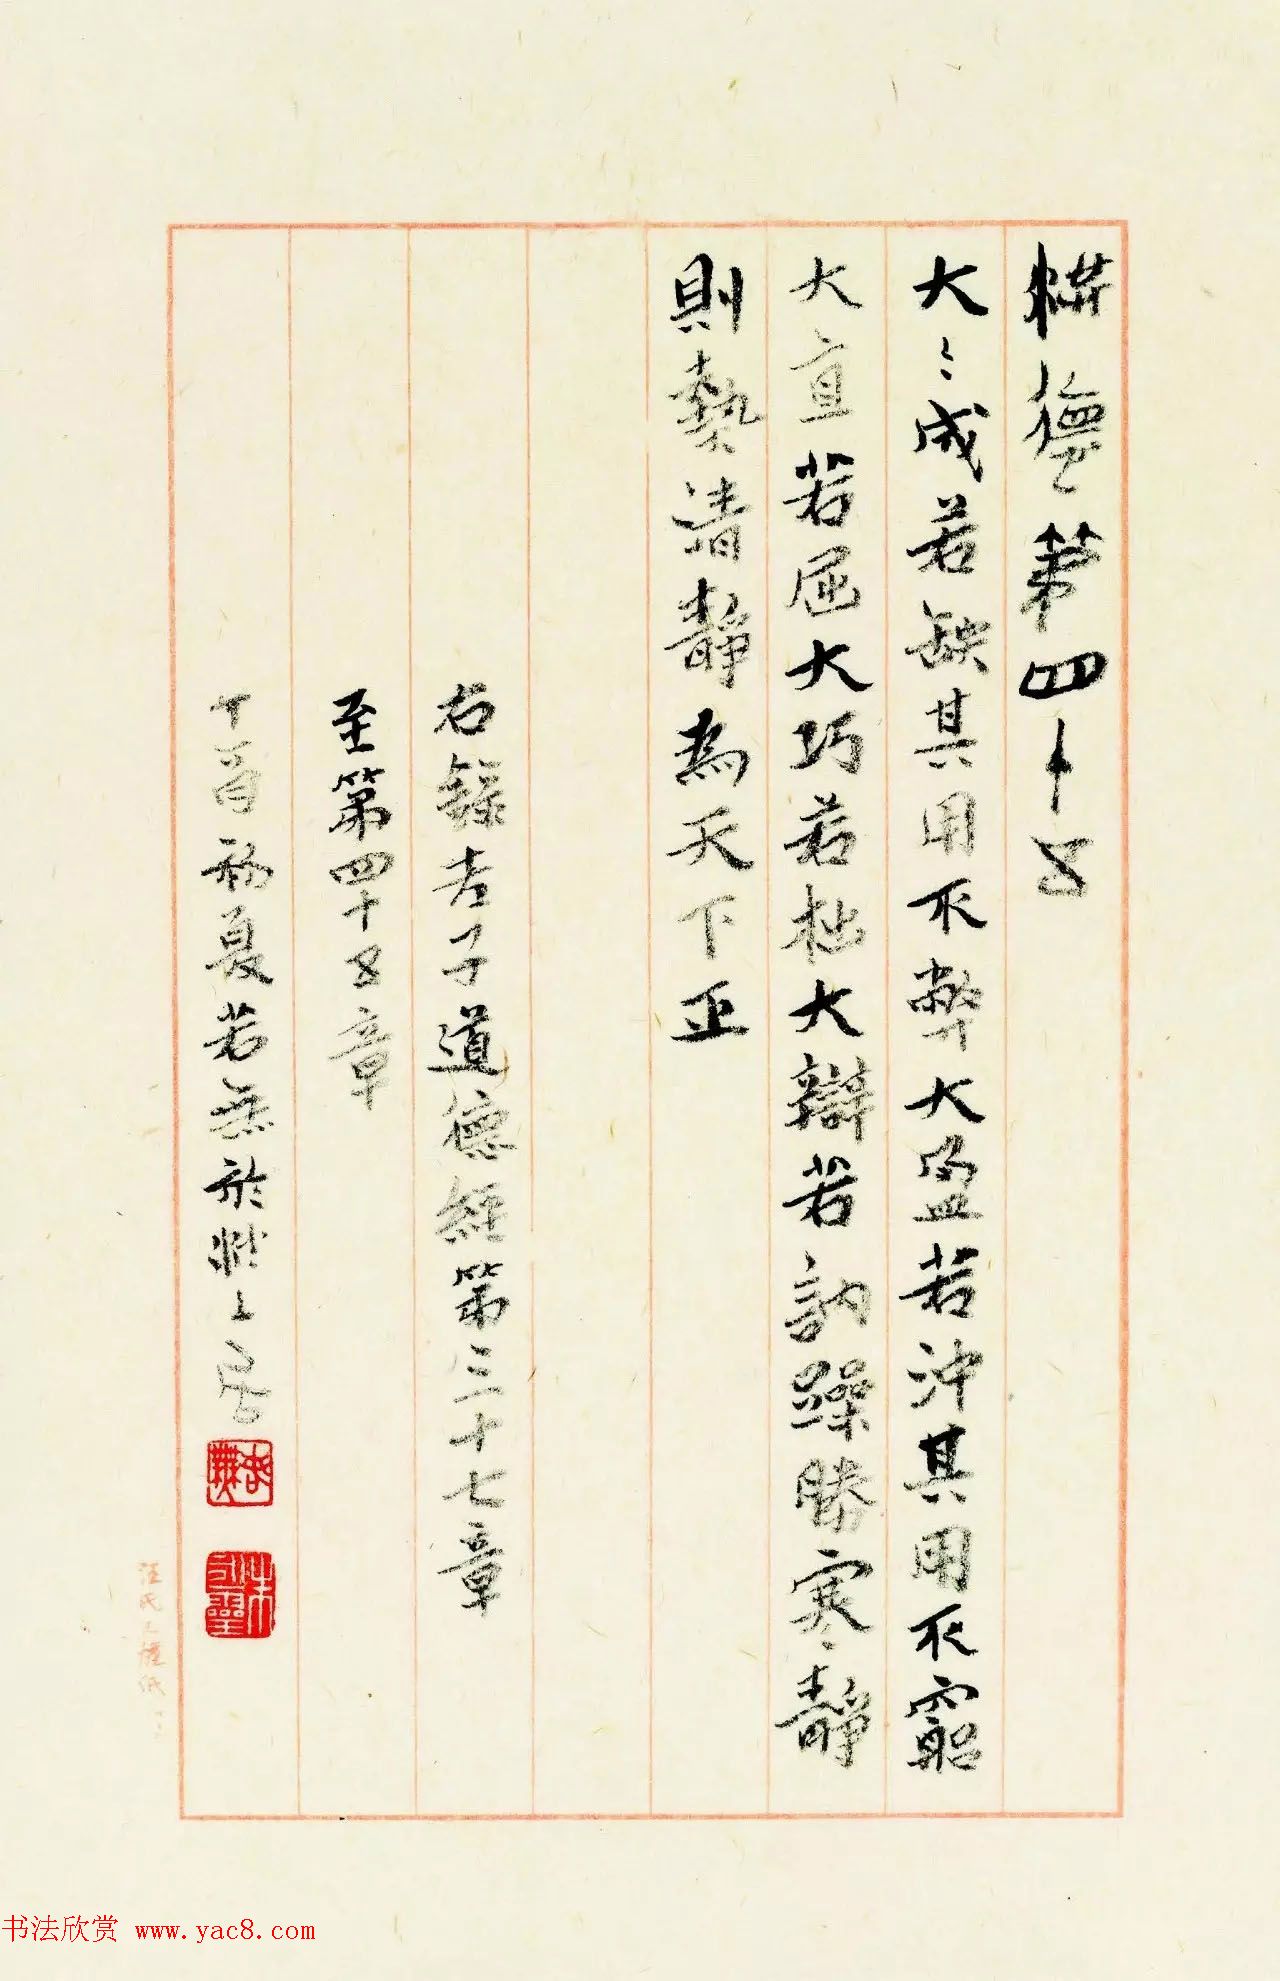 洪德第四十五
大〻成若缺其用不弊大盈若沖其用不窮
大直若屈大巧若拙大辯若訥躁勝寒靜
則熱清靜為天下正
右錄老子道德經第三十七章
至第四十五章
丁酉初夏若無於
书法欣赏 www.yac8.com